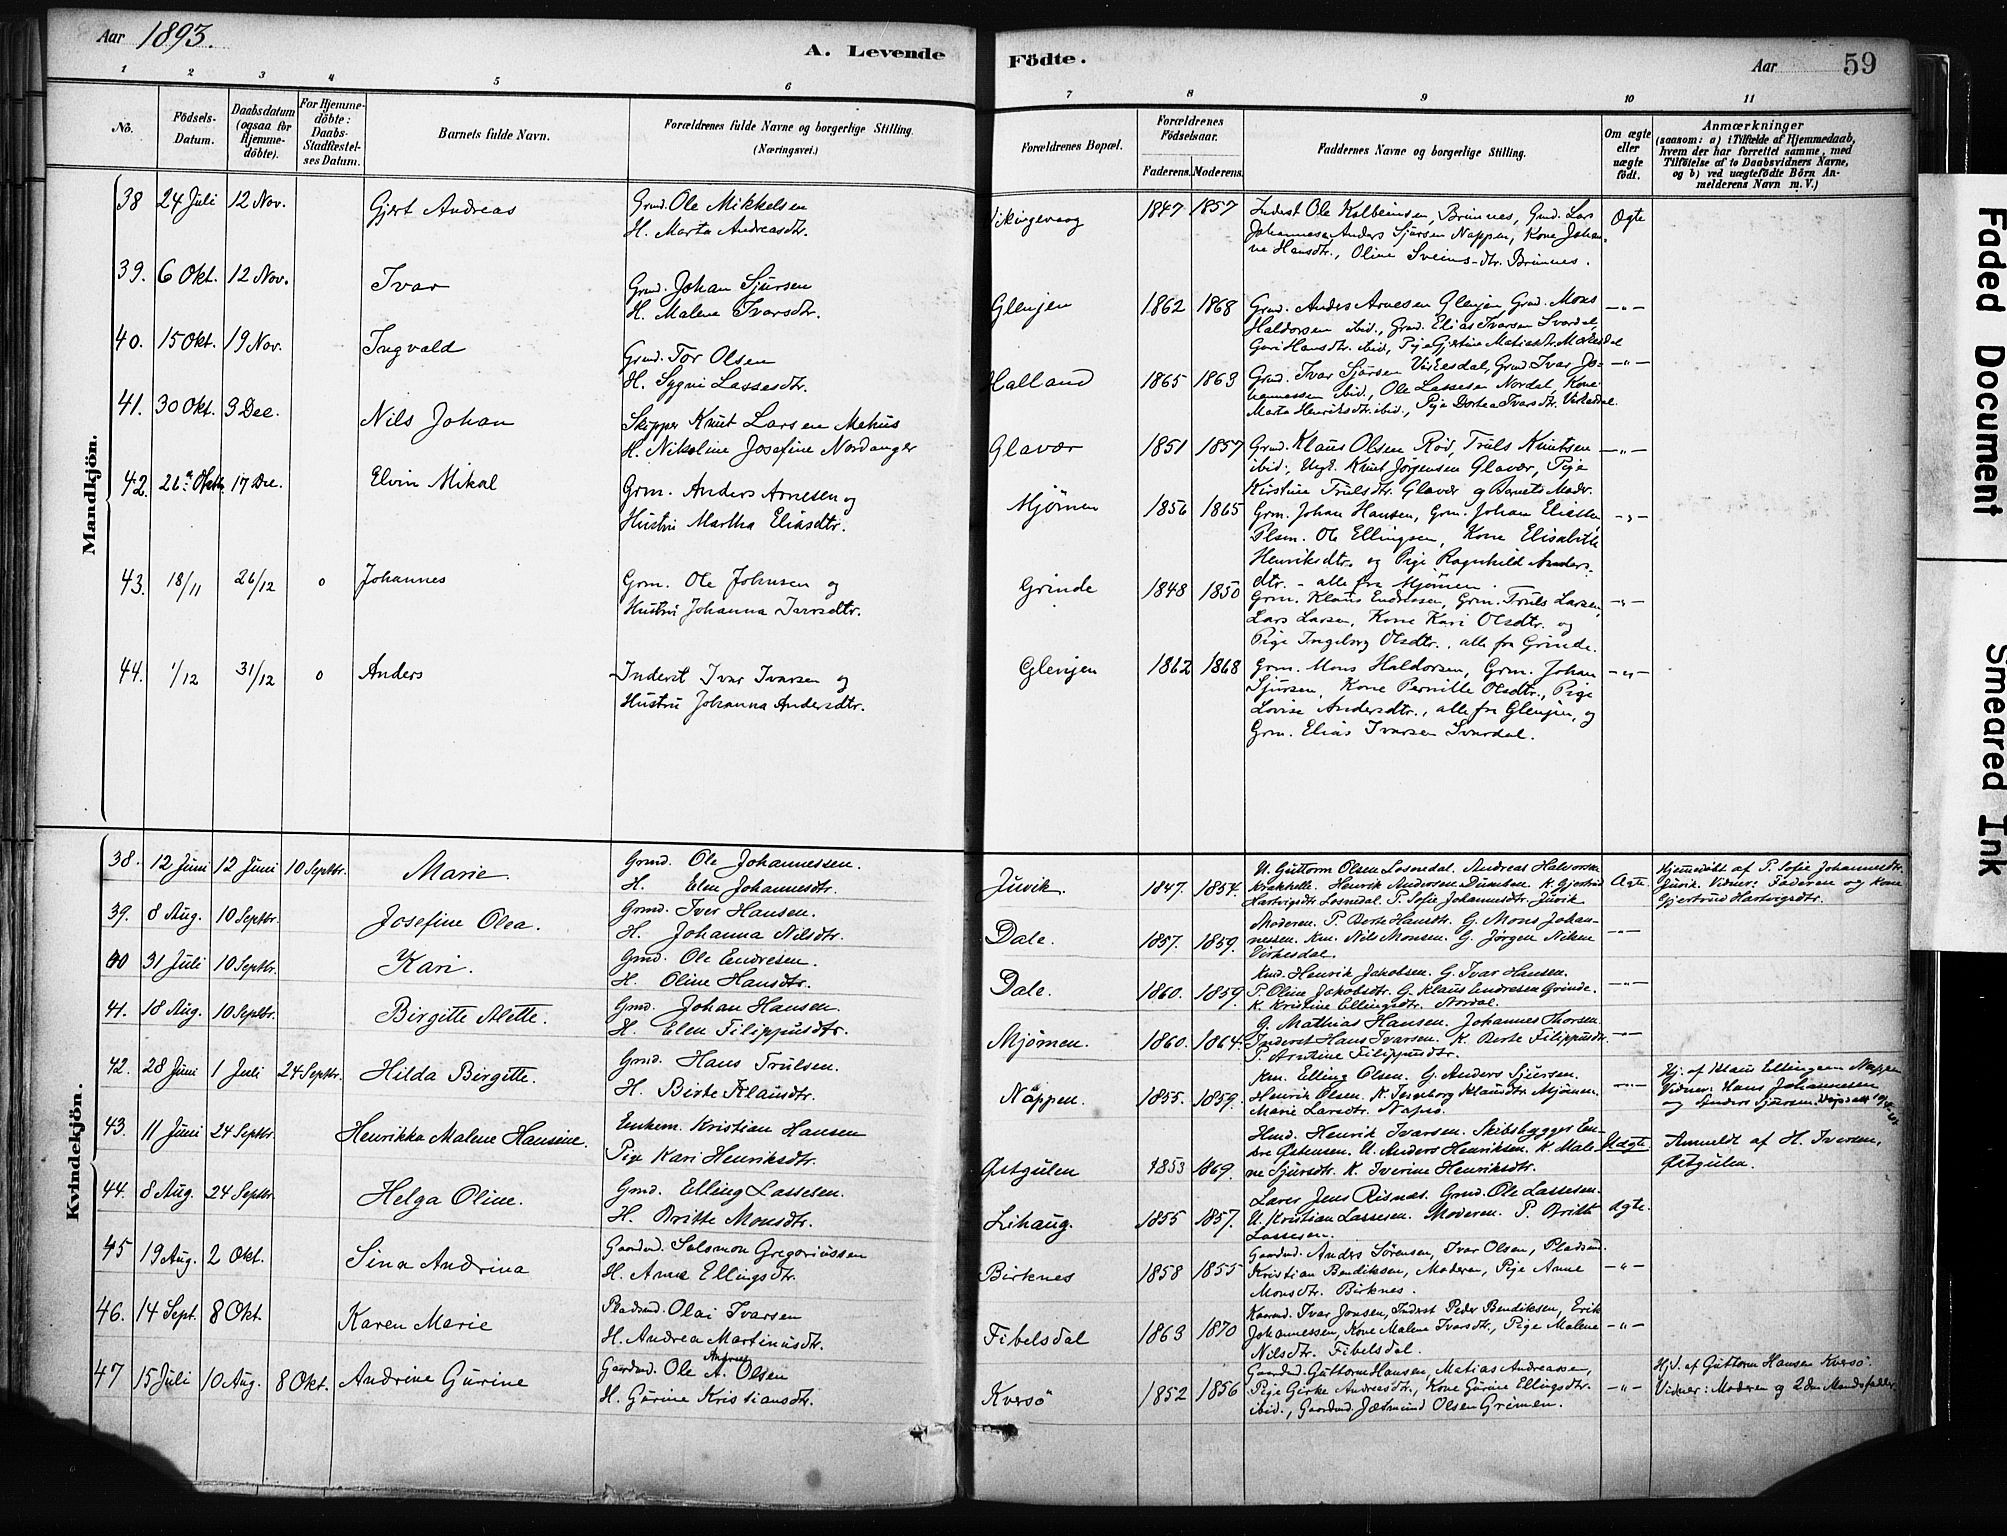 Aar 1893.
A. Levende
Födte.
Aar
59
1 2 3 4 5 6
7 8 9 10 11
No.
Födsels-Datum.
Daabsdatum (ogsaa for Hjemme-döbte).
For Hjemme-döbte: Daabs-Stadfæstel-ses Datum.
Barnets fulde Navn.
Forældrenes fulde Navne og borgerlige Stilling.
(Næringsvei.)
Forældrenes Bopæl.
Forældrenes Födselsaar.
Faderens. Moderens.
Faddernes Navne og borgerlige Stilling.
Om ægte eller uægte födt.
Anmærkninger
(saasom: a) i Tilfælde af Hjemmedaab, hvem der har forrettet samme, med Tilföielse af to Daabsvidners Navne, og b) ved uægtefödte Börn Anmelderens Navn m. V.)
Mandkjön.
38 24 Juli 12 Nov. Gjert Andreas
Grmd. Ole Mikkelsen
H. Marta Andreasdtr.
Vikingevaag 1847 1857
Inderst Ole Kolbeinsen Brünnes, Grmd. Lars
Johannesen Anders Sjursen Nappen, Kone Johan-
ne Hansdtr., Oline Sveins-dtr. Brünnes.
Ægte
39. 6 Okt. 12 Nov. Ivar
Grmd. Johan Sjursen
H. Malene Ivarsdtr.
Glenjen 1862 1868
Grmd. Anders Arnesen Glenjen Grmd. Mons
Haldorsen ibid., Grmd. Elias Ivarsen Svardal,
Guri Hansdtr. ibid, Pige Gjertine Matiasdtr.
—"—
40. 15 Okt. 19 Nov. Ingvald
Grmd. Tor Olsen
H. Sygni Lassesdtr.
Halland 1865 1863
Grmd. Ivar Sjursen Virkesdal, Grmd. Ivar Jo-
hannessen ibid., Ole Lassesen Nordal, Kone
Marta Henriksdtr. ibid., Pige Dortea Ivarsdtr. Virkesdal.
—"—
41. 30 Okt. 3 Dec. Nils Johan
Skipper Knut Larsen Mehus
H. Nikoline Josefine Nordanger
Glavær 1851 1857
Grmd. Klaus Olsen Rød, Truls Knutsen
ibid., Ungk. Knut Jørgensen Glavær, Pige
Kirstine Trulsdtr. Glavær og Barnets Moder.
—"—
42. 17 Dec. Elvin Mikal
Grm. Anders Arnesen og
Hustru Martha Eliasdtr.
Mjömen 1856 1865
Grm. Johan Hansen, Grm. Johan Eliassen,
Plsm. Ole Ellingsen, Kone Elisabeth
Henriksdtr. og Pige Ragnhild Anders-
dtr. - alle fra Mjömen.
—"—
43. 18/11 26/12 o Johannes
Grm. Ole Johnsen og
Hustru Johanna Ivarsdtr.
Grinde 1848 1850
Grm. Klaus Endresen, Grm. Truls Larsen,
Lars Larsen, Kone Kari Olsdtr. og
Pige Ingeborg Olsdtr., alle fra Grinde.
—"—
44. 1/12 31/12 o Anders
Inderst Ivar Ivarsen og
Hustru Johanna Andersdtr.
Glenjen 1862 1868
Grm. Mons Haldorsen, Grm. Johan
Sjursen, Kone Pernille Olsdtr., Pige
Lovise Andersdtr., alle fra Glenjen, og
Grm. Elias Ivarsen Svardal.
—"—
Kvindekjön.
38. 12 Juni 12 Juni 10 Septbr. Marie.
Grmd. Ole Johannessen.
H. Elen Johannesdtr.
Juvik. 1847. 1854.
U. Guttorm Olsen Losnedal. Andreas Halvorsen
Krakhelle. Henrik Andersen Dumben. K. Gjertrud
Hartvigsdtr. Losnedal. P. Sofie Johannesdtr. Juvik
Ægte.
Hjemmedöbt af P. Sofie Johannesdtr.
Juvik. Vidner: Faderen og Kone
Gjertrud Hartvigsdtr.
39. 8 Aug. 10 Septbr. Josefine Olea.
Grmd. Iver Hansen.
H. Johanna Nilsdtr.
Dale. 1857. 1859.
Moderen. P. Berte Hansdtr. G. Mons Johan-
nessen. Km. Nils Monsen. G. Jörgen Nilsen
Virkesdal.
—"—
40 31 Juli 10 Septbr. Kari.
Grmd. Ole Endresen.
H. Oline Hansdtr.
Dale. 1860. 1859.
Kmd. Henrik Jakobsen. G. Ivar Hansen.
P. Oline Jakobsdtr. G. Klaus Endresen Grinde.
K. Kristine Ellingsdtr. Nordal.
—"—
41. 18 Aug. 10 Septbr. Birgitte Alette.
Grmd. Johan Hansen.
H. Elen Filippusdtr.
Mjömen. 1860. 1864.
G. Mathias Hansen. Johannes Thorsen.
Inderst Hans Ivarsen. K. Berte Filippusdtr.
P. Arntine Filippusdtr.
—"—
42. 28 Juni 1 Juli 24 Septbr. Hilda Birgitte.
Grmd. Hans Trulsen.
H. Birte Klausdtr.
Nappen. 1855. 1859.
Km. Elling Olsen. G. Anders Sjursen.
Henrik Olsen. K. Ingeborg Klausdtr. Mjömen.
Marie Larsdtr. Napsö.
—"—
Hj. af Klaus Ellingsen Nappen
Vidner: Hans Johannesen
og Anders Sjursen.
43. 11 Juni 24 Septbr. Henrikka Malene Hansine.
Enkem. Kristian Hansen
Pige Kari Henriksdtr.
Østgulen 1853 1869.
Hmd. Henrik Ivarsen. Skibsbygger En-
dre Østensen. U. Anders Henriksen. K. Male-
ne Sjursdtr. K. Iverine Henriksdtr.
Uægte
Anmeldt af H. Iversen,
Østgulen.
44. 8 Aug. 24 Septbr. Helga Oline.
Grmd. Elling Lassesen.
H. Britte Monsdtr.
Lihaug. 1855 1857.
Lærer Jens Risnæs. Grmd. Ole Lassesen.
U. Kristian Lassesen. Moderen. P. Britte
Lassesen.
Ægte.
45 19 Aug. 2 Okt. Sina Andrina
Gaardmd. Salomon Gregoriussen
H. Anne Ellingsdtr.
Birknes 1858 1855
Gaardmd. Anders Sörensen, Ivar Olsen, Pladsmd.
Kristian Bendiksen, Moderen, Pige Anne
Monsdtr. Birknes.
—"—
46. 14 Sept. 8 Okt. Karen Marie
Pladsmd. Olai Ivarsen
H. Andrea Martinusdtr.
Fibelsdal 1863 1870
Kaarmd. Ivar Jonsen, Inderst Peder Bendiksen, Erik
Johannessen, Kone Malene Ivarsdtr., Pige Malene
Nilsdtr. Fibelsdal.
—"—
47 15 Juli 10 Aug. 8 Okt. Andrine Gurine
Gaardmd. Ole A. Olsen
H. Gurine Kristiansdtr.
Kversö 1852 1856
Gaardmd. Guttorm Hansen, Matias Andreassen,
Pige Girke Andreasdtr., Kone Gurine Ellingsdtr.
ibid., Gaardmd. Jetmund Olsen Grimen.
—"—
Hjd. af Guttorm Hansen Kversö.
Vidner: Moderen og 2den Mandsfadder
Faded Document
Smeared Ink